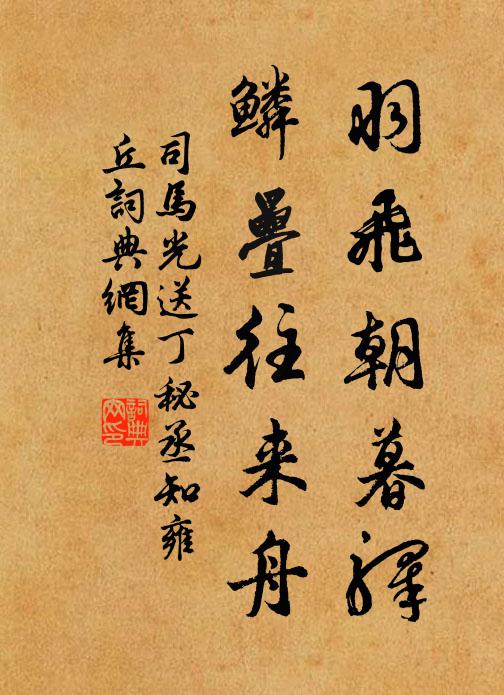 羽飛朝暮驛
鱗疊往来舟
司馬光送丁秘丞知雍
丘詞典網集
詞典
网印